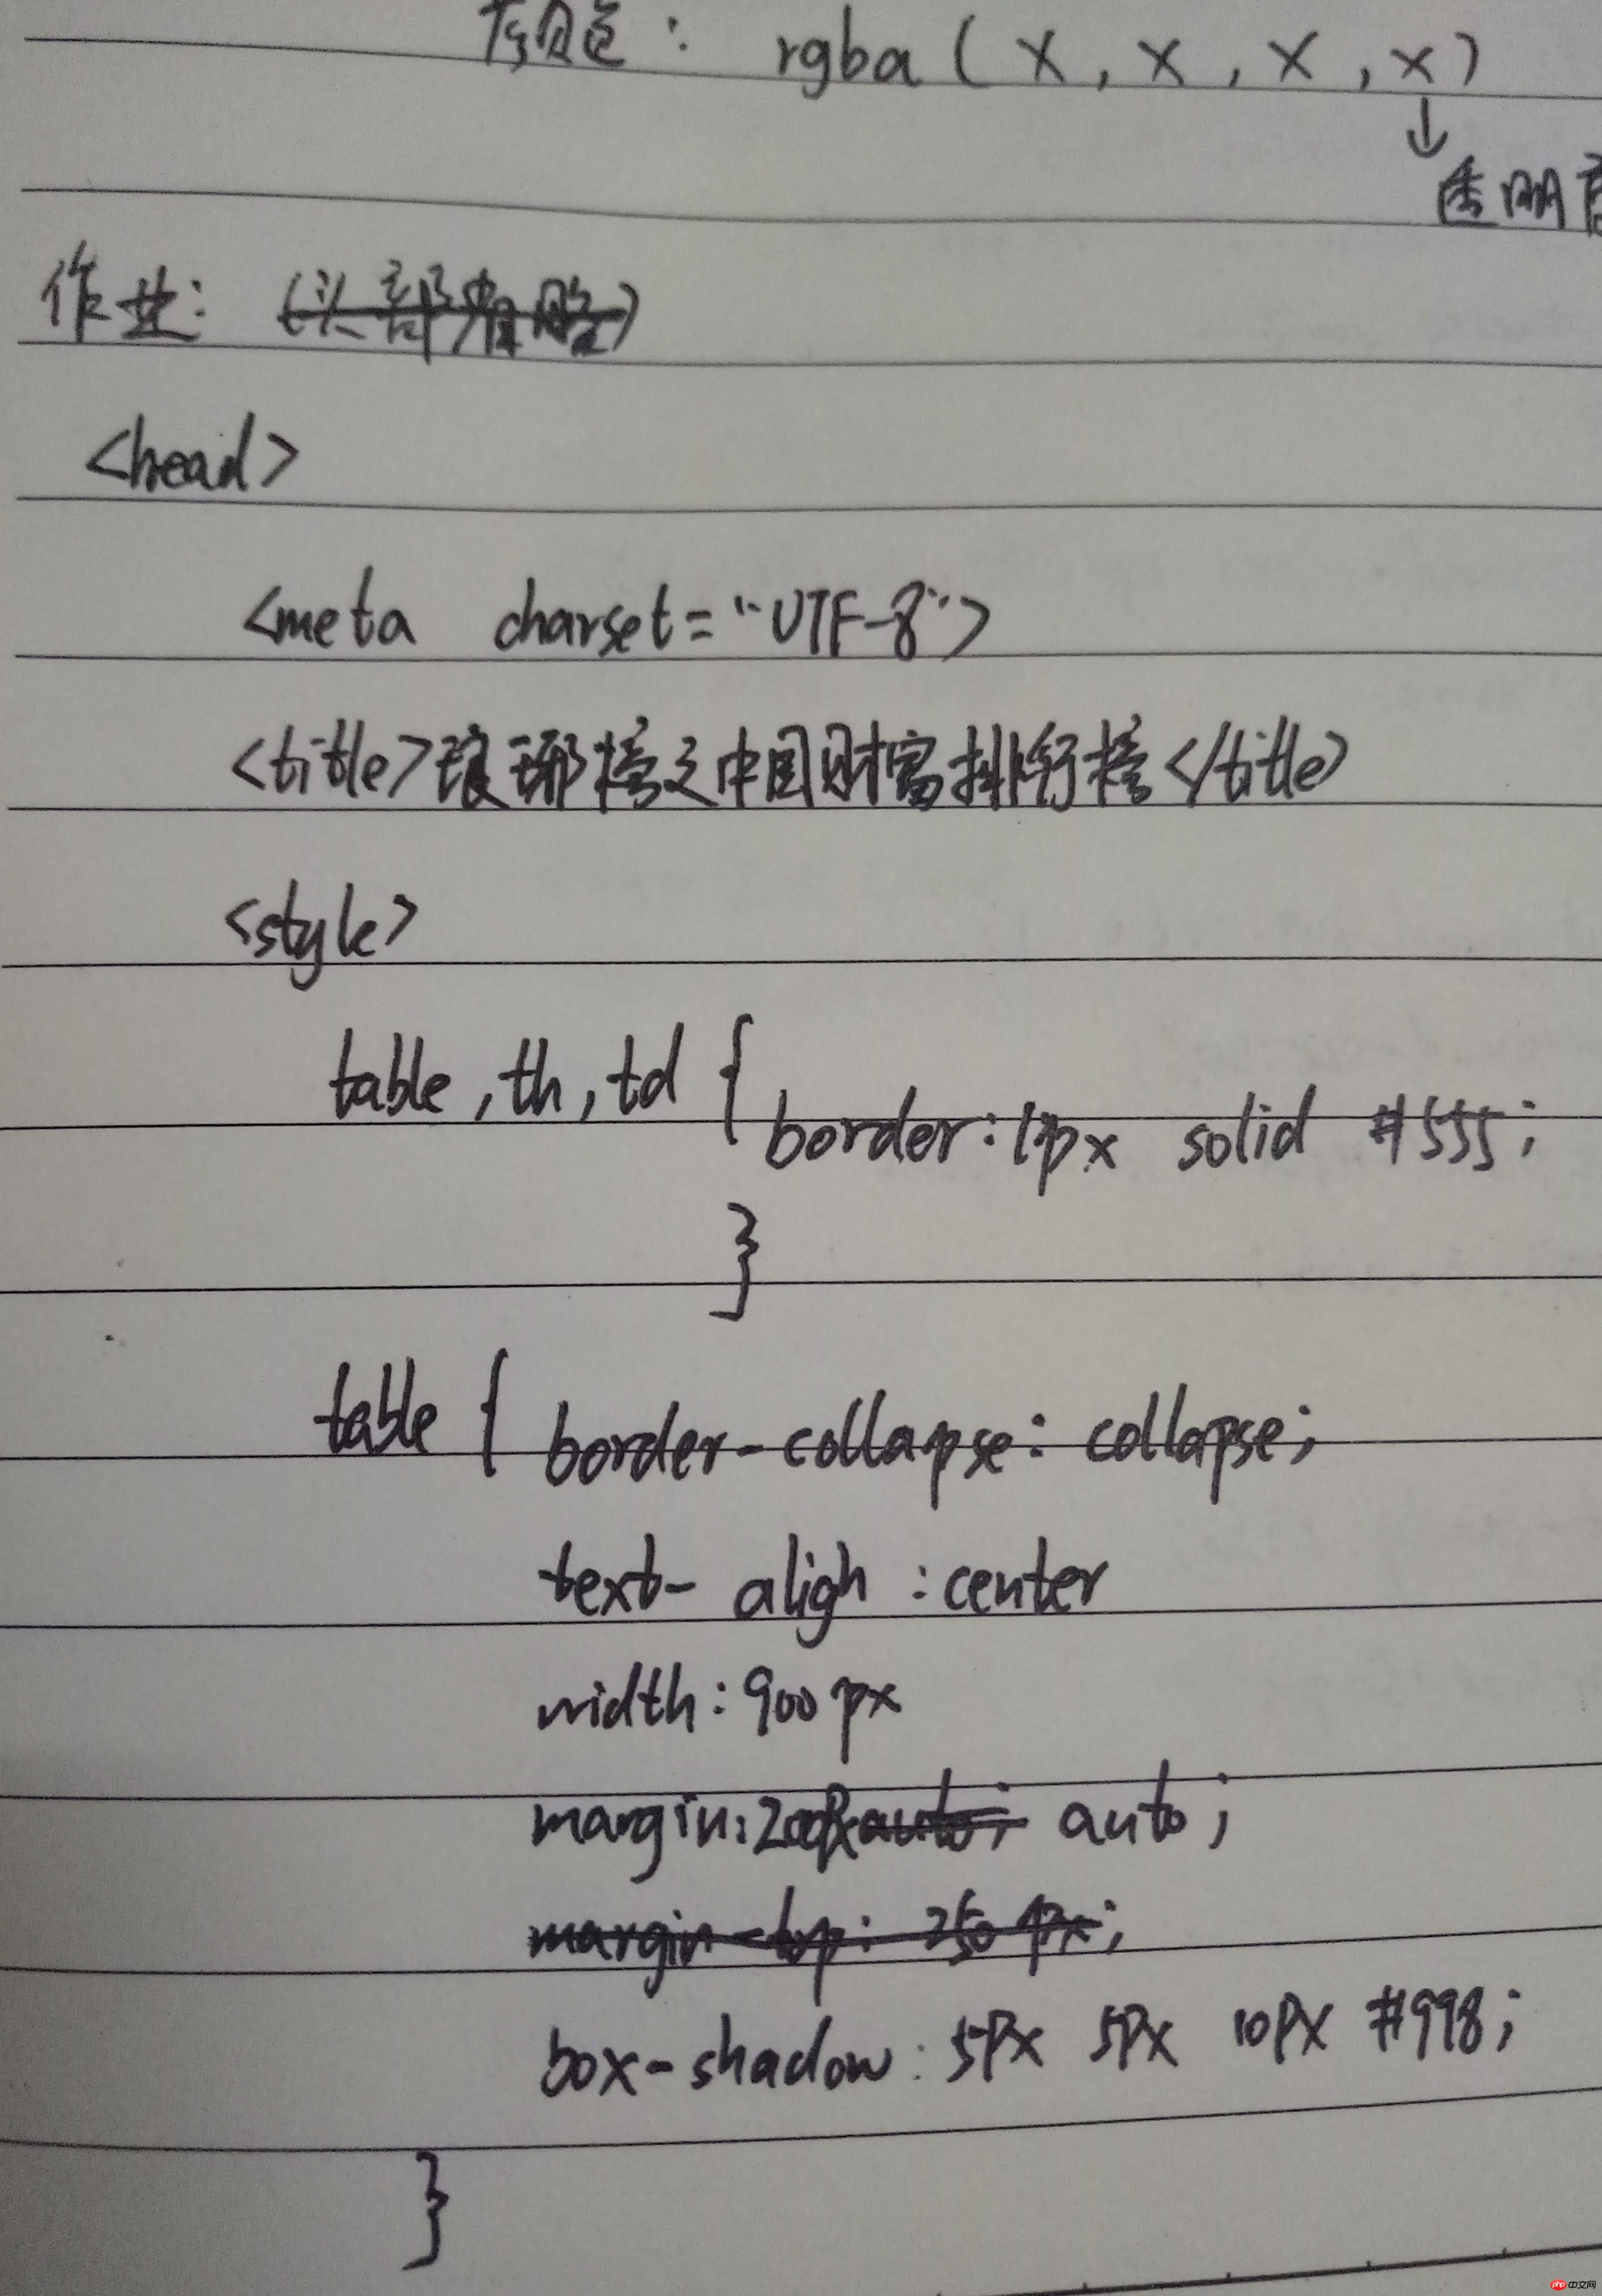 : rgba ( x , x , x , x )
↓
透明度
作业:
<head>
<meta charset="UTF-8">
<title>琅琊榜之中国财富排行榜</title>
<style>
table , th , td {
border: 1px solid #555;
}
table { border-collapse: collapse;
text- aligh : center
width: 900px
margin: 200px auto;
margin-top: 250px;
box-shadow: 5Px 5Px 10PX #998;
}
php 中文网